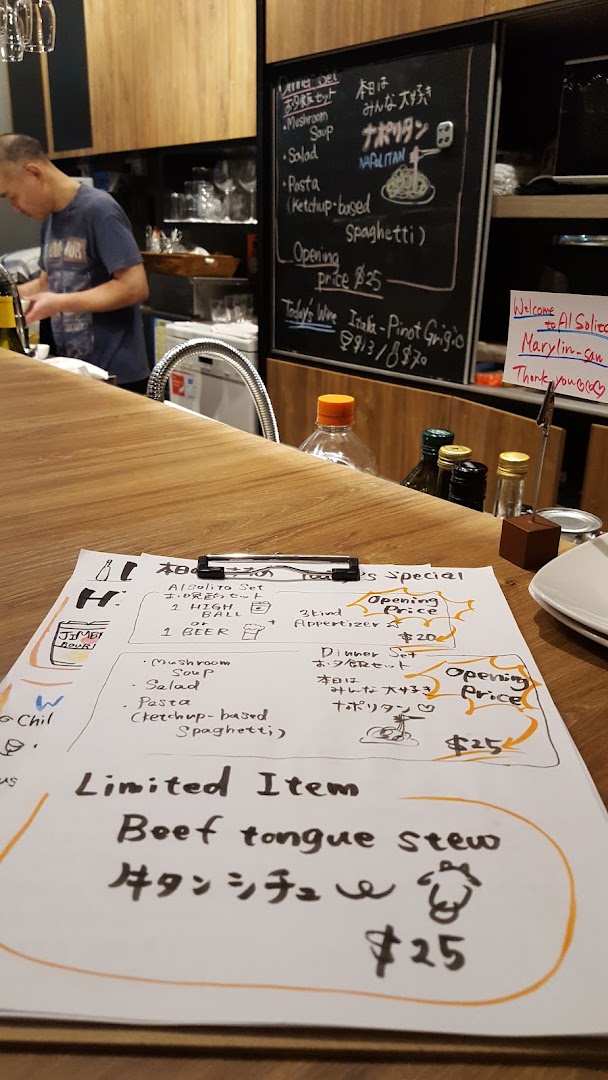 Dinner Set
お夕飯セット
・Mushroom
Soup
・Salad
・Pasta
(Ketchup-based
Spaghetti)
本日は
みんな大好き
ナポリタン
NAPOLITAN
Opening
price $25
Today's Wine Italia-Pinot Grigio
$13/ $70
Welcome
to Al Solito
Marylin-san
Thank you
本日の Special
Al Solito Set
セット
1 HIGH
BALL
or
1 BEER
+
3kind
Appertizer
Opening
Price
$20
・Mushroom
Soup
・Salad
・Pasta
(Ketchup-based
Spaghetti)
Dinner Set
お夕飯セット
本日は
みんな大好き
ナポリタン♡
Opening
Price
$25
Limited Item
Beef tongue stew
牛タンシチュー
$25
H
JIM
W
Chil